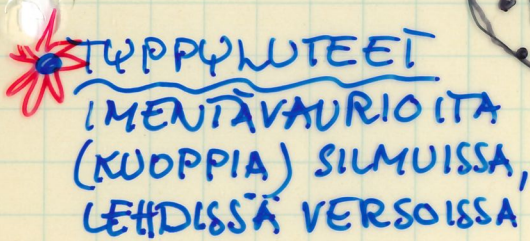 TYPPYLUTEET
IMENTÄVAURIOITA
(KUOPPIA) SILMUISSA,
LEHDISSÄ VERSOISSA